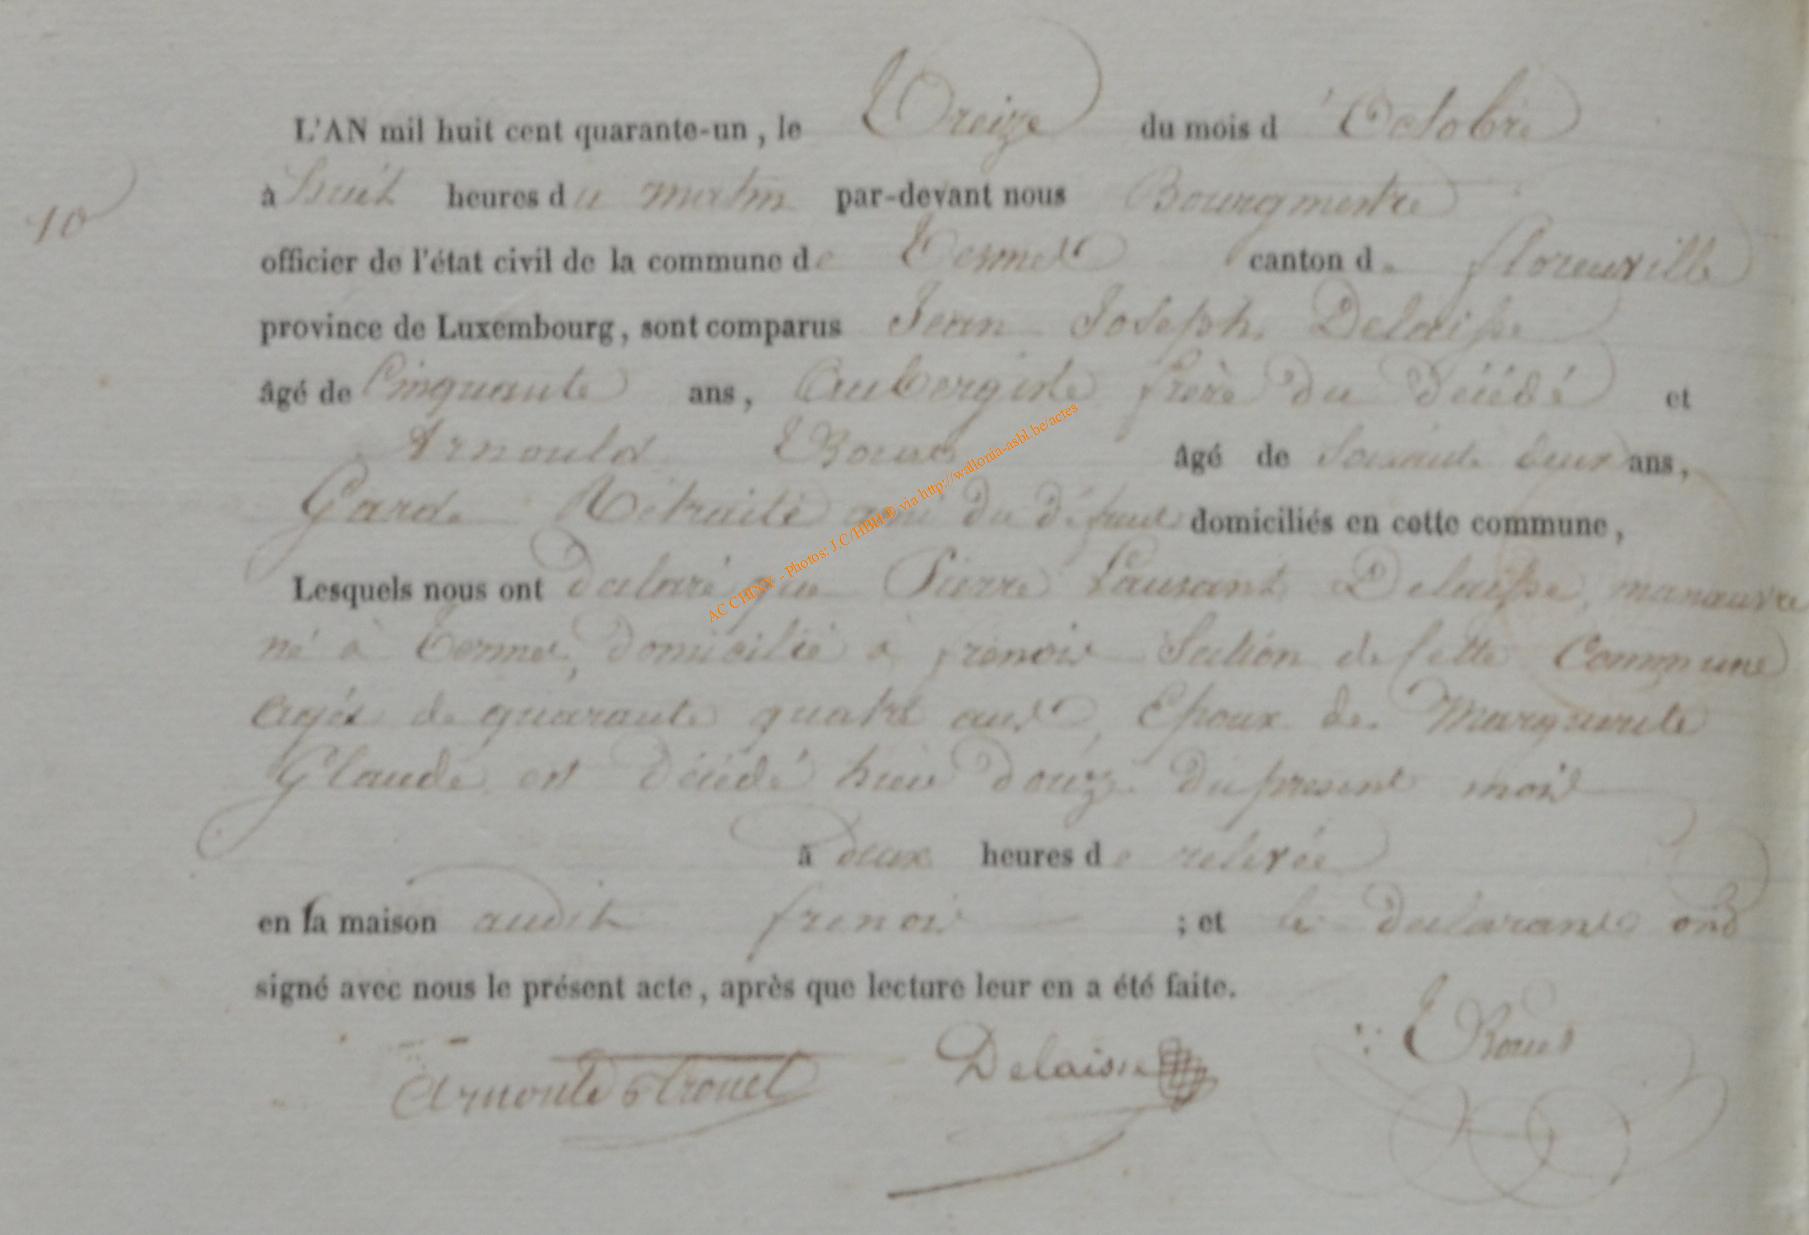 L'AN mil huit cent quarante-un, le Treize du mois d'Octobre
10
à huit heures du matin par-devant nous Bourgmestre
officier de l'état civil de la commune de Termes canton de florenville
province de Luxembourg, sont comparus Jean Joseph Delaisse
âgé de Cinquante ans, Aubergiste frère du Décédé et
Arnould âgé de Soixante deux ans,
Garde Retraité ami du défunt domiciliés en cette commune,
Lesquels nous ont declaré que Pierre Laurant Delaisse, manœuvre
né à Termes, domicilié à frenois Section de Cette Commune
agés de quarante quatre ans, Epoux de Marguerite
Glaude est Décédé hier douze du present mois
à deux heures de relevée
en sa maison audit frenois ; et les declarants ont
signé avec nous le présent acte, après que lecture leur en a été faite.
Delaisse
AC CHINY - Photos: J.C/HBH® via http://wallonia-asbl.be/actes